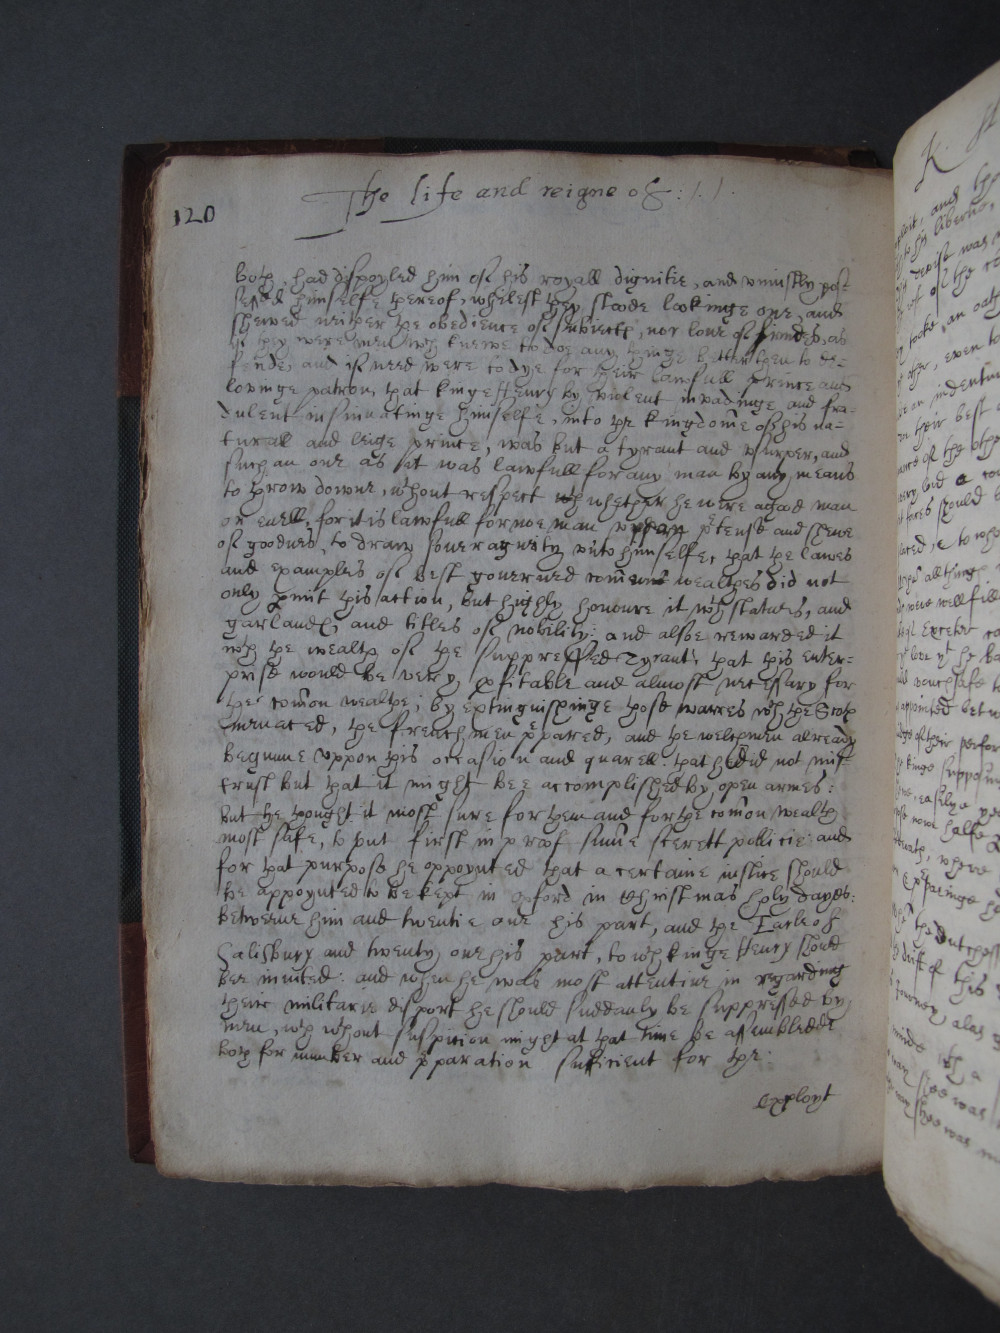 120
The life and reigne of: / /.
both, had dispoyled him of his royall dignitie, and uniustly pos-
sessed himselfe thereof, whilest they stoode lookinge one, and
shewed neither the obedience of subiects, nor loue of frindes, as
if they were men wch knewe to doe any thinge better then to de-
fende, and if need were to dye for their lawfull Prince and
lovinge patron, that kinge Henry by violent invadinge and fra-
dulent insinuatinge himselfe, into the kingdome of his na-
turall and leige prince, was but a tyrant and vsurper, and
such an one as it was lawfull for any man by any means
to throw downe, wthout respect whether he were a good man
or euell, for it is lawfull for noe man vppon ptense and shewe
of goodnes, to draw soueraignity vnto himselfe, that the lawes
and examples of best gouerned common wealthes did not
only pmit this action, but highly honoure it wth statues, and
garlands and titles of Nobility: and alsoe rewarded it
wth the wealth of the suppressed Tyrant, that this enter-
prise would be very pfitable and almost necessary for
the common wealthe, by extinguishinge those warres wch the Scots
menaced, the frenchmen ppared, and the welchmen already
begunne vppon this occasion and quarell. that he did not mis-
trust but that it might bee accomplished by open armes:
but he thought it most sure for them and for the common wealth
most safe, to put first in proof some secrett pollicie: and
for that purpose he appoynted that a certaine iustice should
be appoynted to be kept in oxford in Christmas holy dayes:
betweene him and twentie one his part, and the Earle of
Salisbury and twenty one his part, to wch kinge Henry should
bee inuited: and when he was most attentiue in regarding
theire militarie disport he should suddanly be suppressed by
men, wch wthout suspition might at that time be assembledde
both for number and pparation sufficient for the
exployt